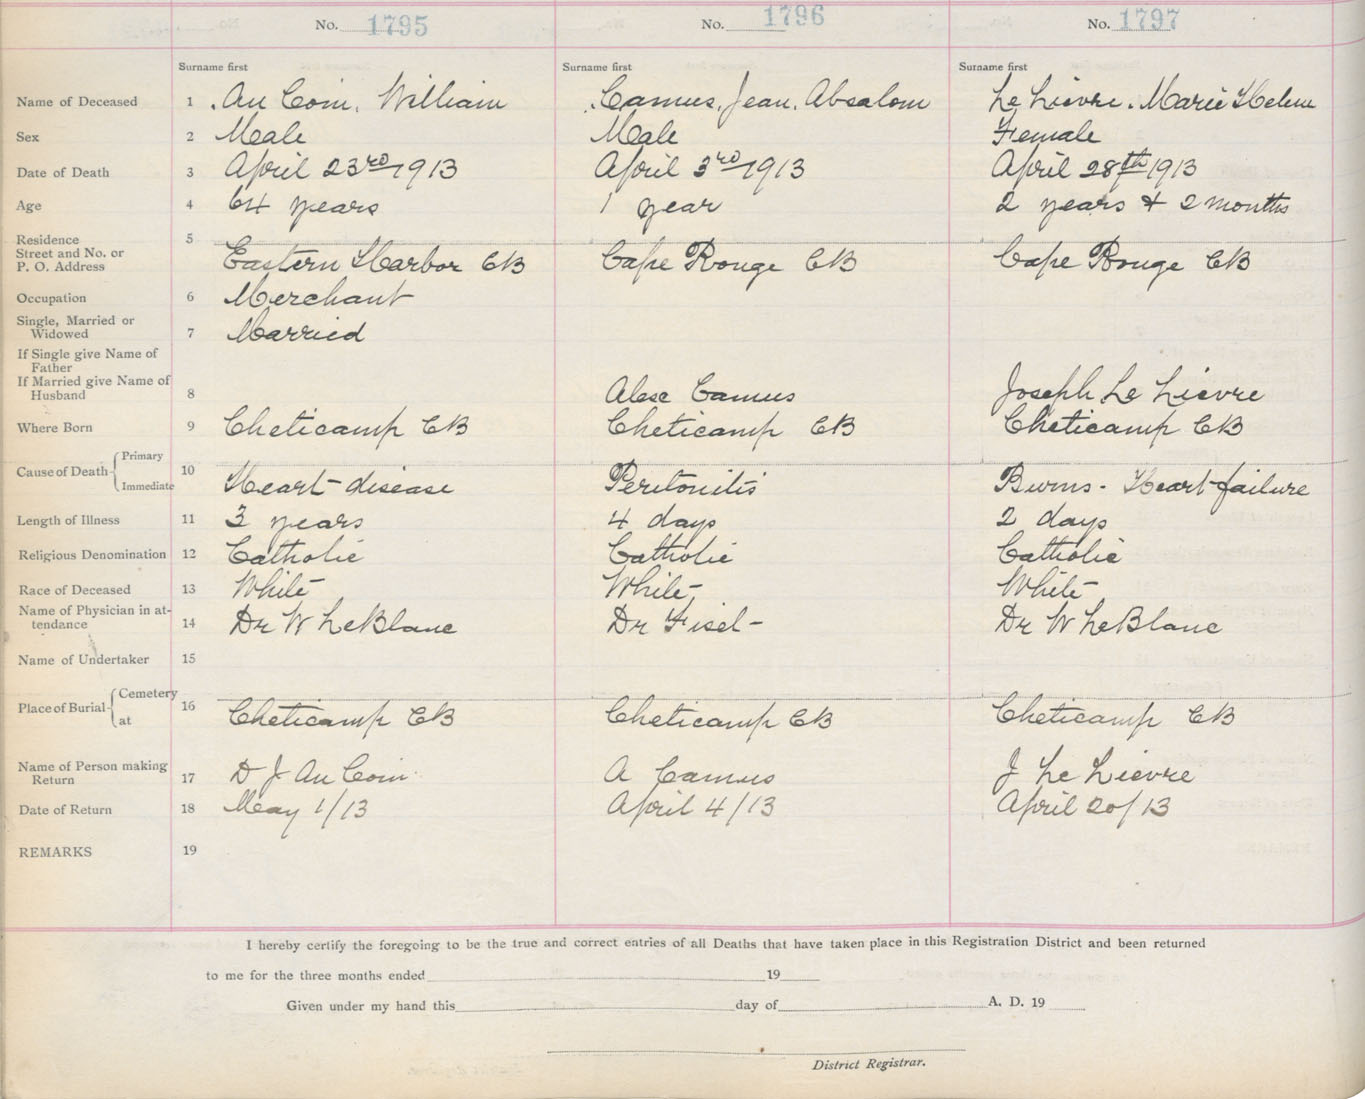 No. 1795 No. 1796 No. 1797
Surname first Surname first Surname first
Name of Deceased 1 Au Coin, William Camus, Jean, Absalom Le Lievre, Marie Helene
Sex 2 Male Male Female
Date of Death 3 April 23rd 1913 April 3rd 1913 April 28th 1913
Age 4 64 years 1 year 2 years & 2 months
Residence 5
Street and No. or
P. O. Address Eastern Harbor CB Cape Rouge CB Cape Rouge CB
Occupation 6 Merchant
Single, Married or
Widowed 7 Married
If Single give Name of
Father
If Married give Name of
Husband 8 Alex Camus Joseph Le Lievre
Where Born 9 Cheticamp CB Cheticamp CB Cheticamp CB
Cause of Death Primary
Immediate 10 Heart-disease Peritonitis Burns - Heart-failure
Length of Illness 11 3 years 4 days 2 days
Religious Denomination 12 Catholic Catholic Catholic
Race of Deceased 13 White White White
Name of Physician in at-
tendance 14 Dr W LeBlanc Dr Fisel- Dr W LeBlanc
Name of Undertaker 15
Place of Burial Cemetery
at 16 Cheticamp CB Cheticamp CB Cheticamp CB
Name of Person making
Return 17 D J Au Coin A Camus J Le Lievre
Date of Return 18 May 1/13 April 4/13 April 20/13
REMARKS 19
I hereby certify the foregoing to be the true and correct entries of all Deaths that have taken place in this Registration District and been returned
to me for the three months ended 19
Given under my hand this day of A. D. 19
District Registrar.